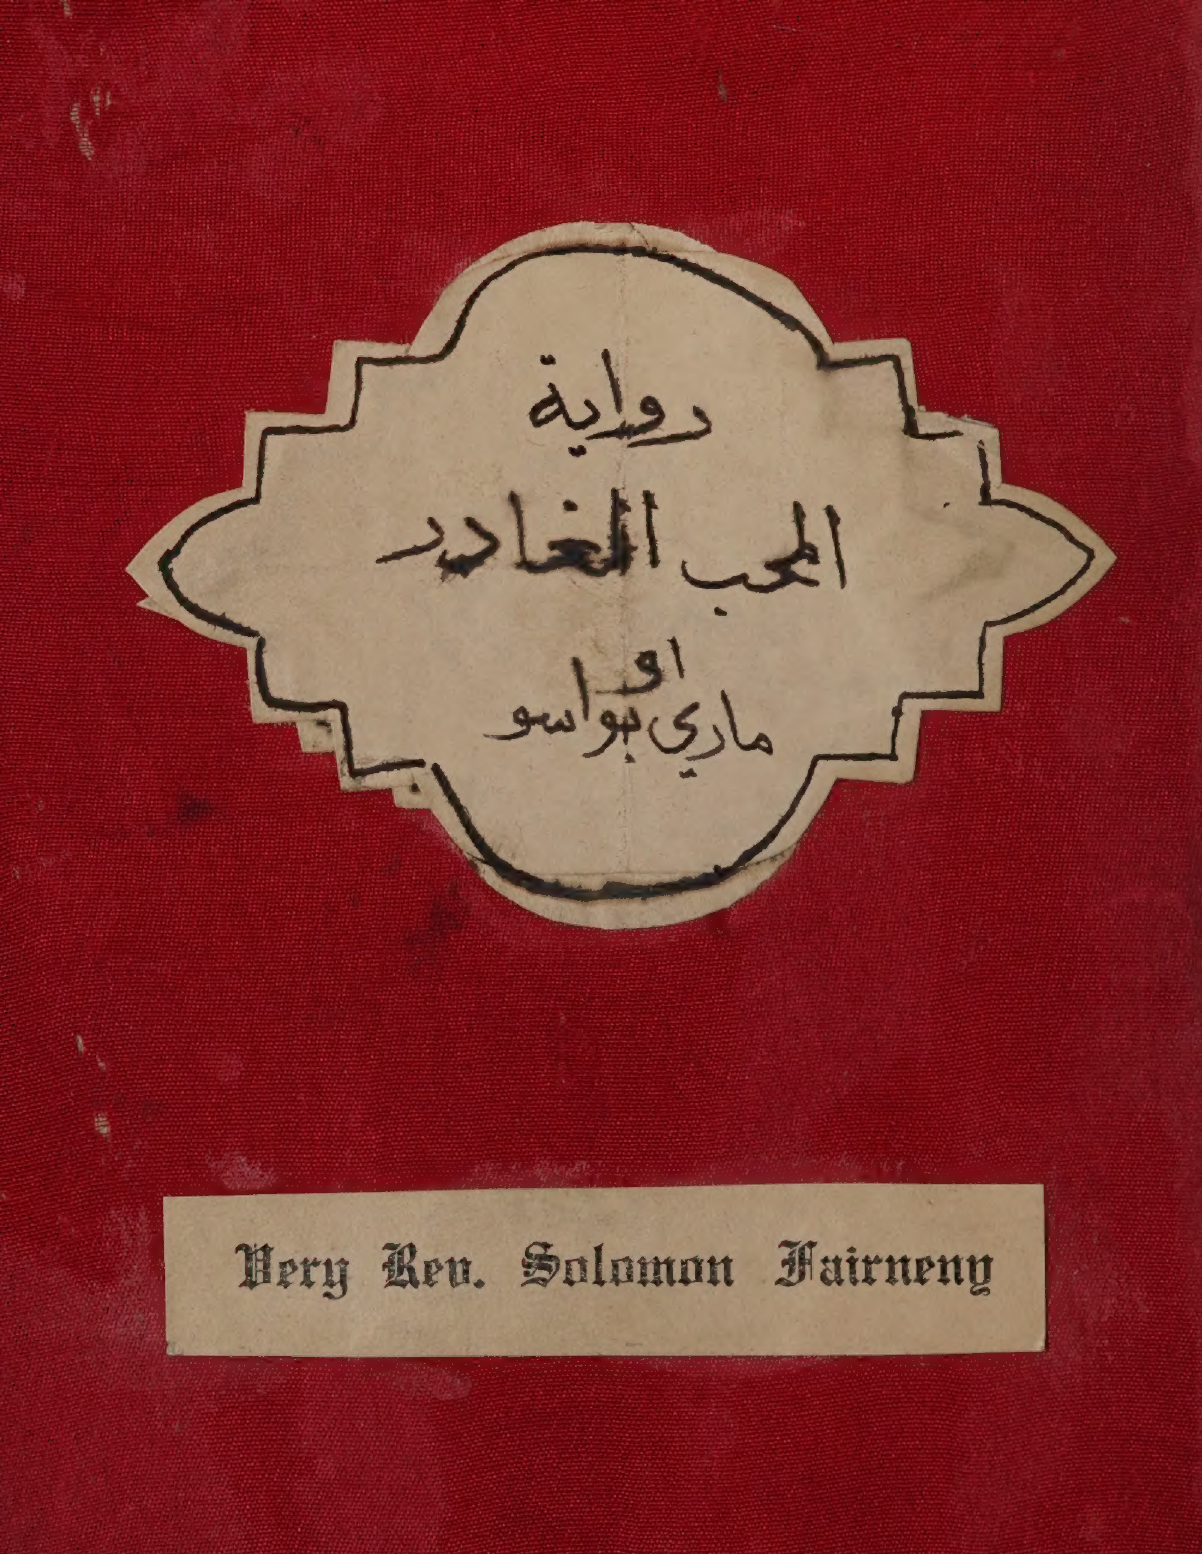 رواية
المحب الغادر
او
ماري بواسو
Very Rev. Solomon Fairneny